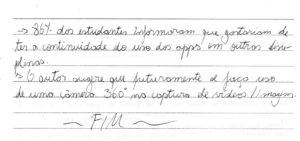 → 86% dos estudantes informaram que gostariam de
ter a continuidade do uso dos apps em outras disci-
plinas.
→ O autor sugere que futuramente se faça uso
de uma câmera 360° na captura de vídeos / imagem.
~ FIM ~